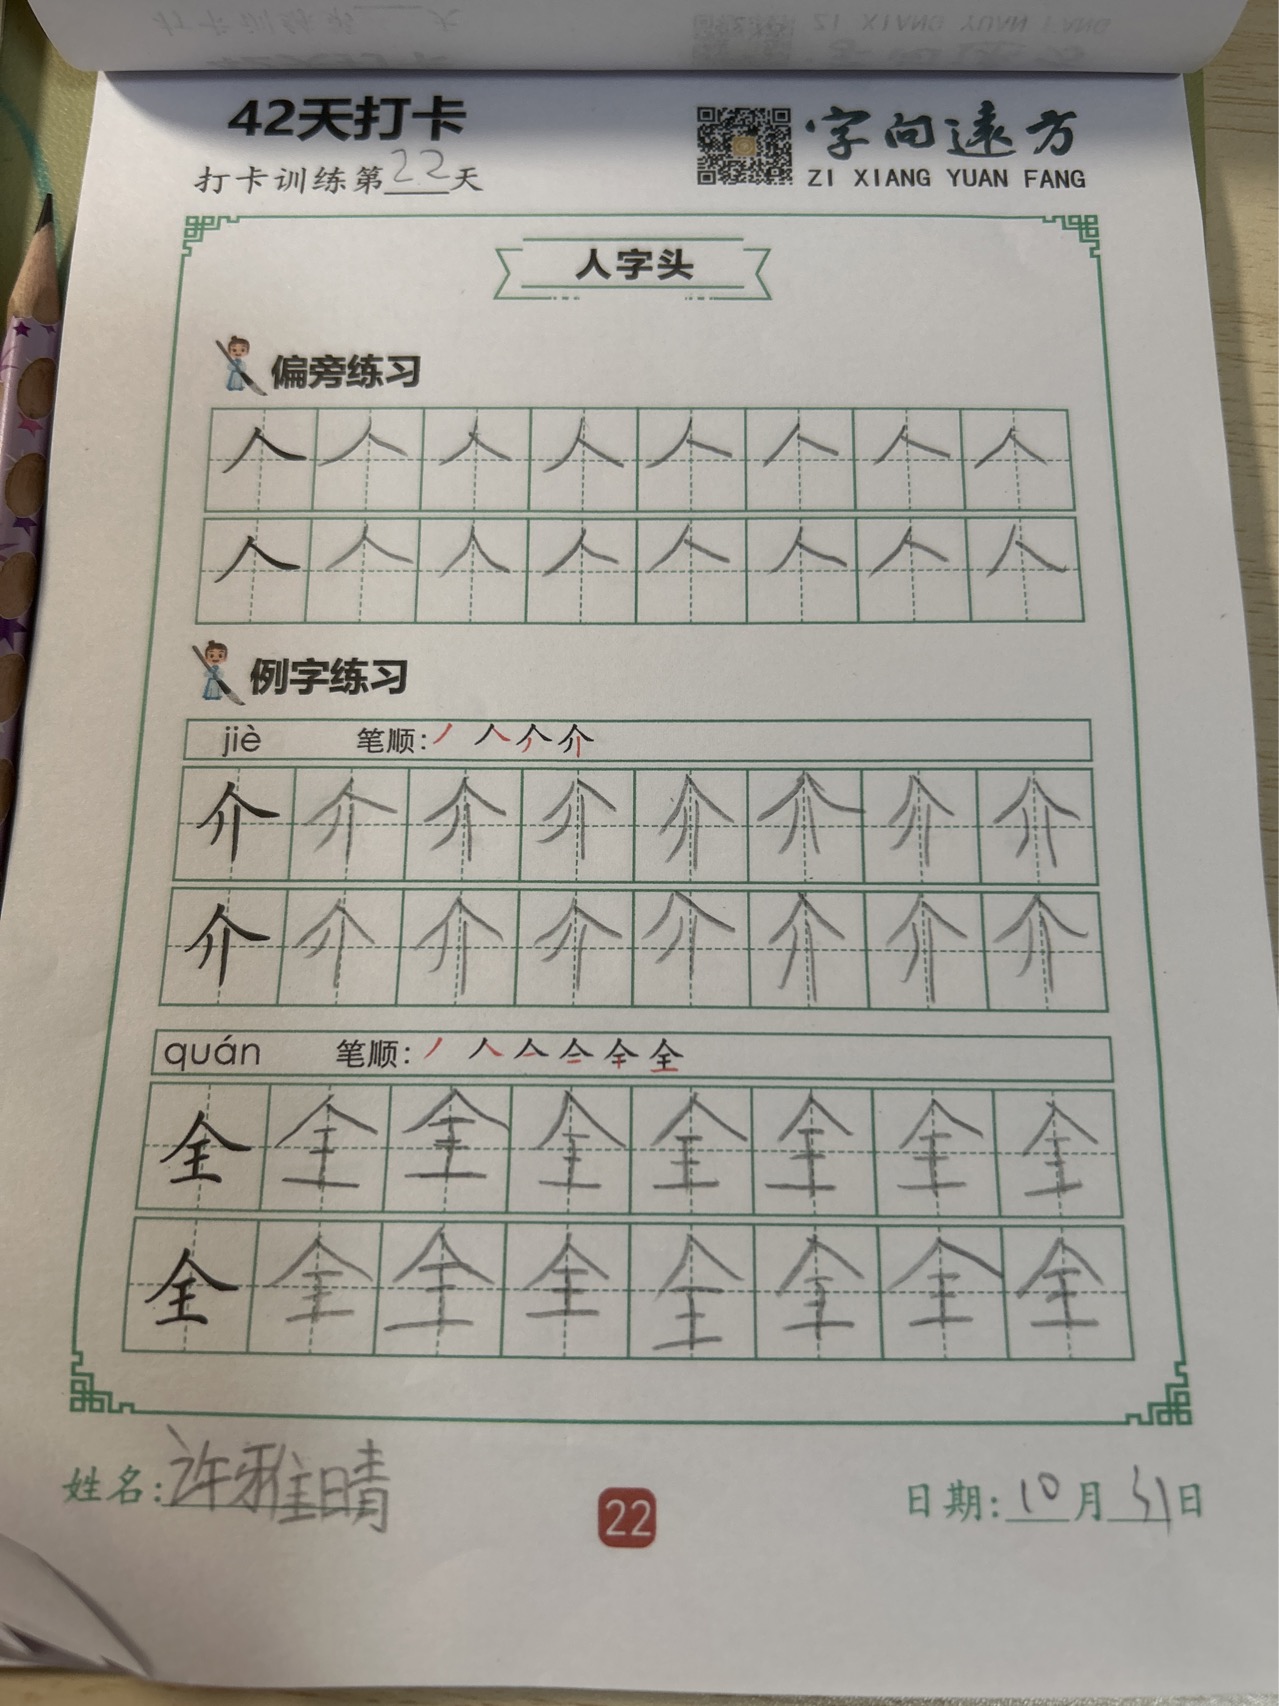 42天打卡
字向远方
打卡训练第22天
ZI XIANG YUAN FANG
人字头
偏旁练习
人 人 人 人 人 人 人 人
人 人 人 人 人 人 人 人
例字练习
jiè 笔顺: 丿 人 介 介
介 介 介 介 介 介 介 介
介 介 介 介 介 介 介 介
quán 笔顺: 丿 人 亼 仝 全 全
全 全 全 全 全 全 全 全
全 全 全 全 全 全 全 全
姓名: 许雅晴
22
日期: 10月31日